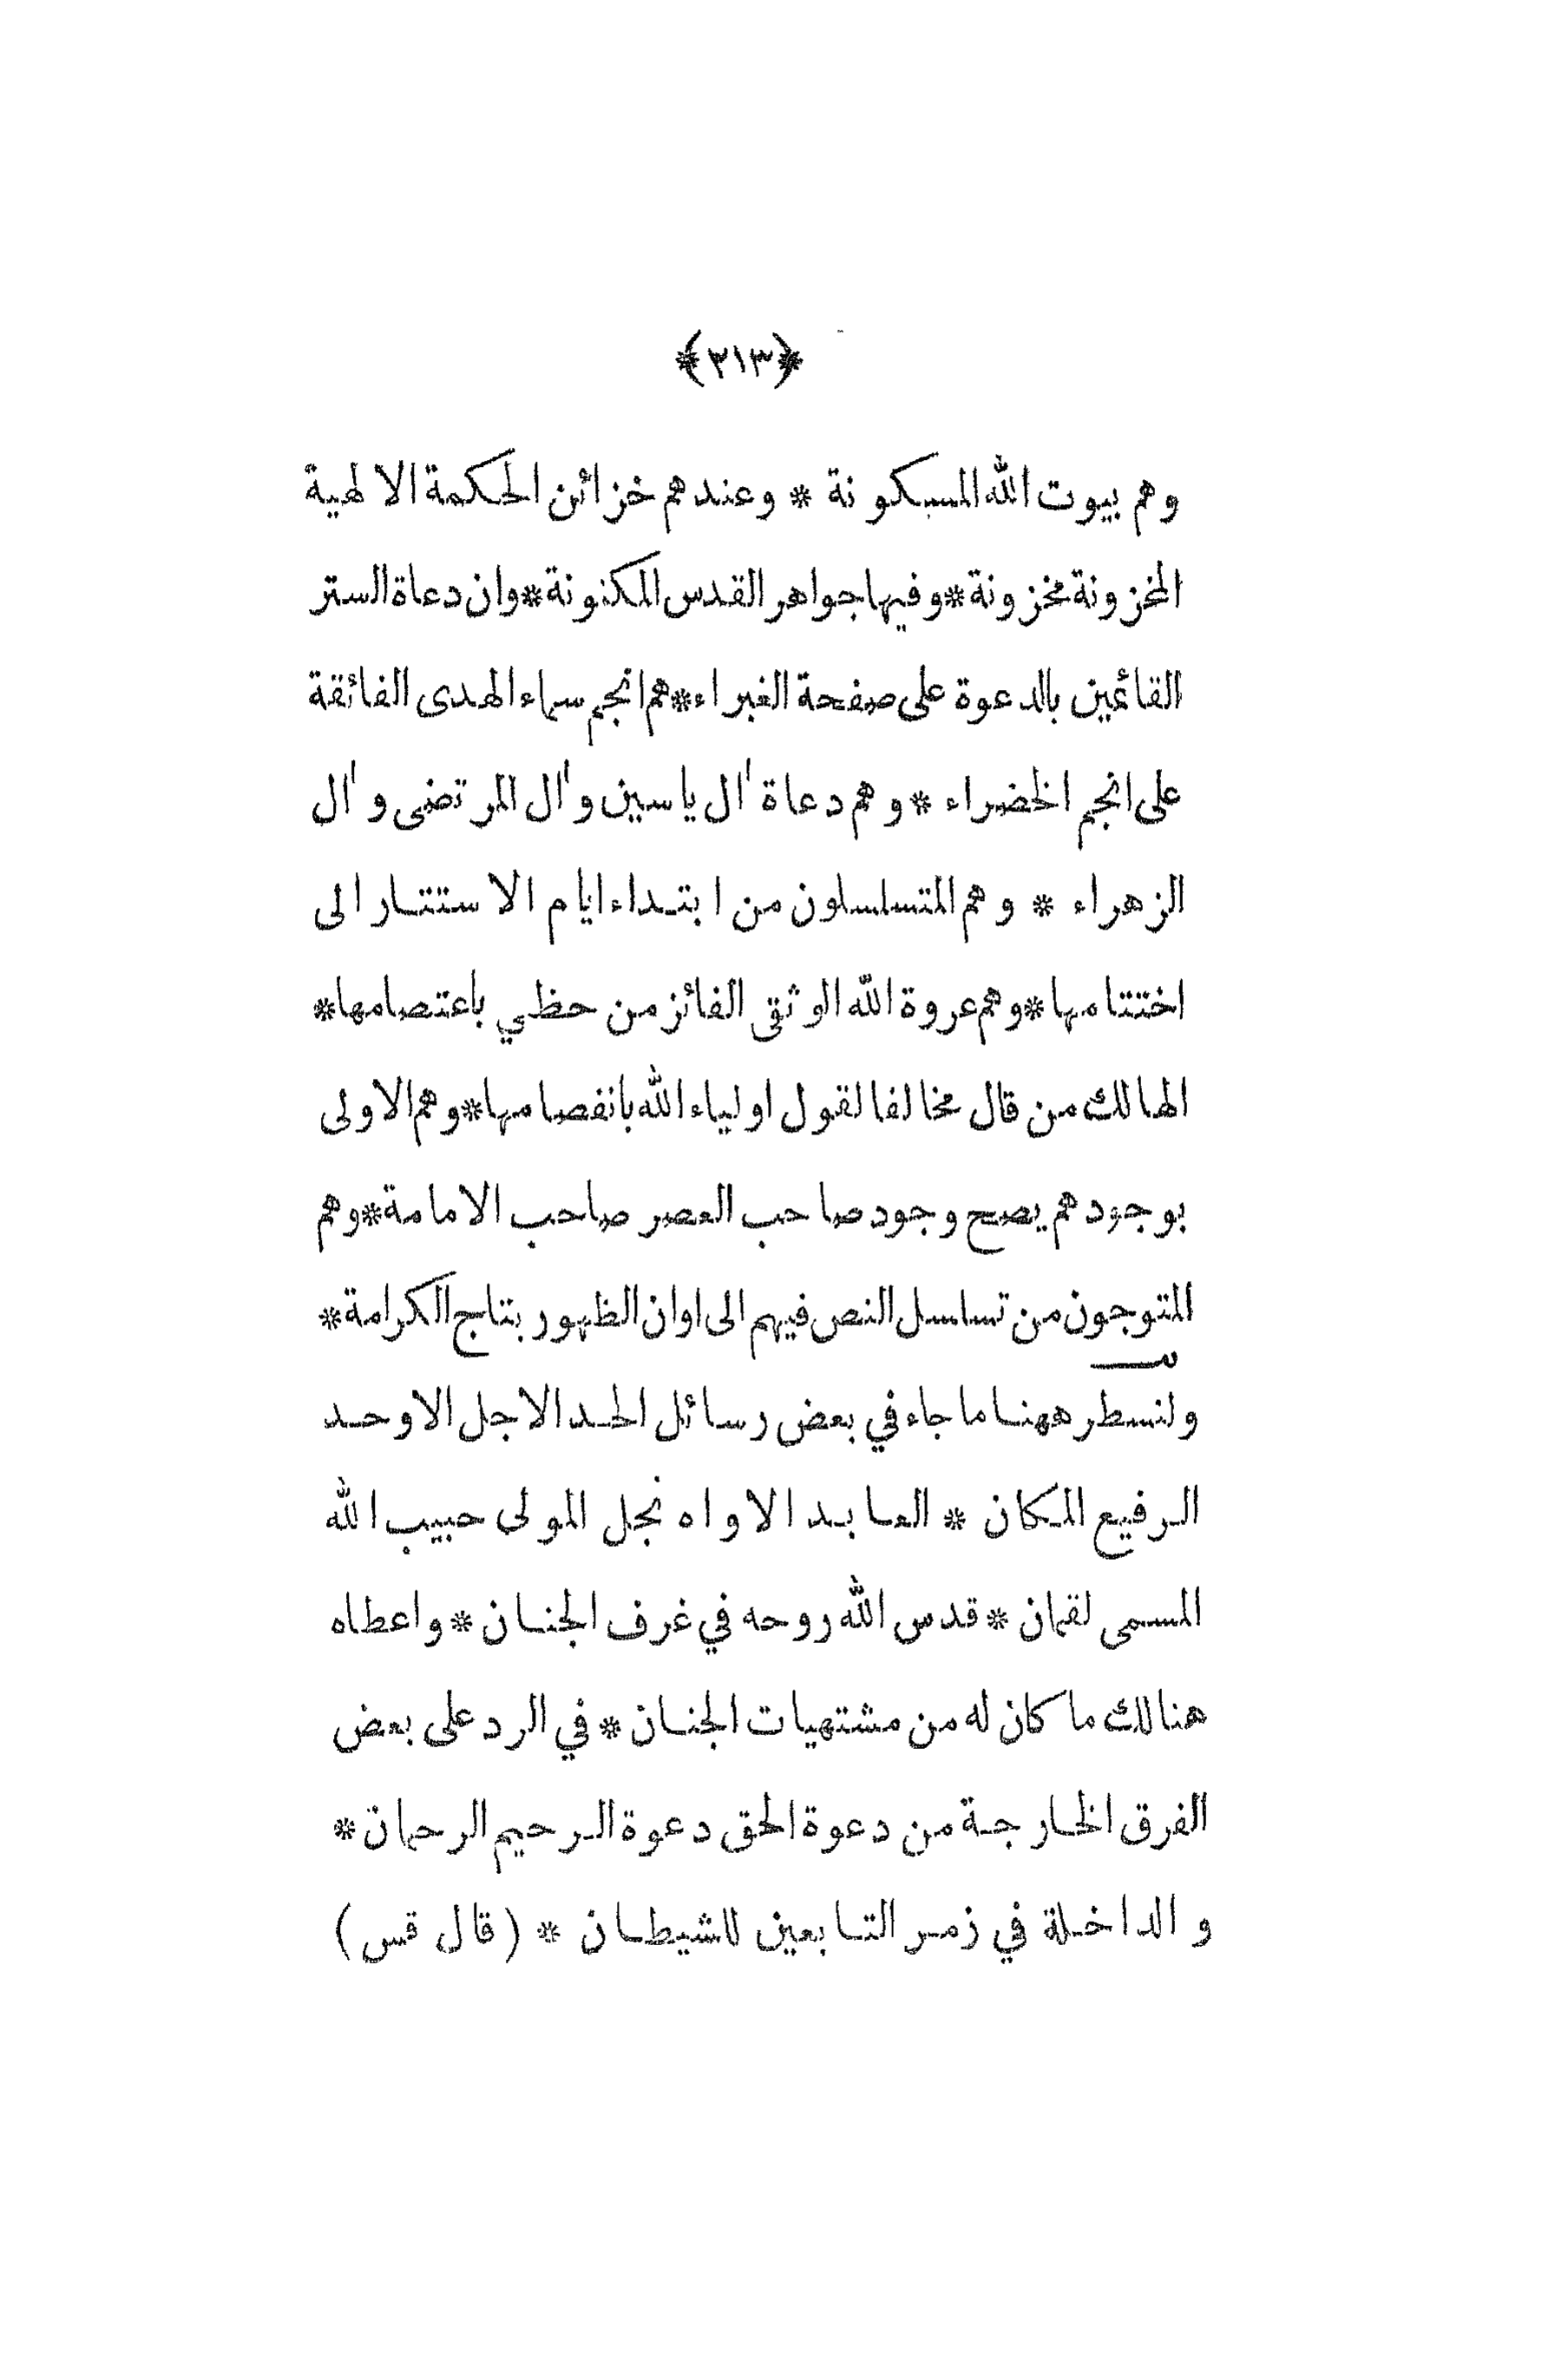 ﴿٢١٣﴾
وهم بيوت الله المسكونة * وعندهم خزائن الحكمة الالهية
المخزونة مخزونة * وفيها جواهر القدس المكنونة * وان دعاة الستر
القائمين بالدعوة على صفحة الغبراء * هم انجم سماء الهدى الفائقة
على انجم الخضراء * وهم دعاة اٰل ياسين واٰل المرتضى واٰل
الزهراء * وهم المتسلسلون من ابتداء ايام الاستتار الى
اختتامها * وهم عروة الله الوثقى الفائز من حظي باعتصامها *
الهالك من قال مخالفا لقول اولياء الله بانفصامها * وهم الاولى
بوجودهم يصح وجود صاحب العصر صاحب الامامة * وهم
المتوجون من تساسل النص فيهم الى اوان الظهور بتاج الكرامة *
ولنسطر ههنا ما جاء في بعض رسائل الحد الاجل الاوحد
الرفيع المكان * العابد الاواه نجل المولى حبيب الله
المسمى لقمان * قدس الله روحه في غرف الجنان * واعطاه
هنالك ما كان له من مشتهيات الجنان * في الرد على بعض
الفرق الخارجة من دعوة الحق دعوة الرحيم الرحمان *
والداخلة في زمر التابعين للشيطان * (قال قس)